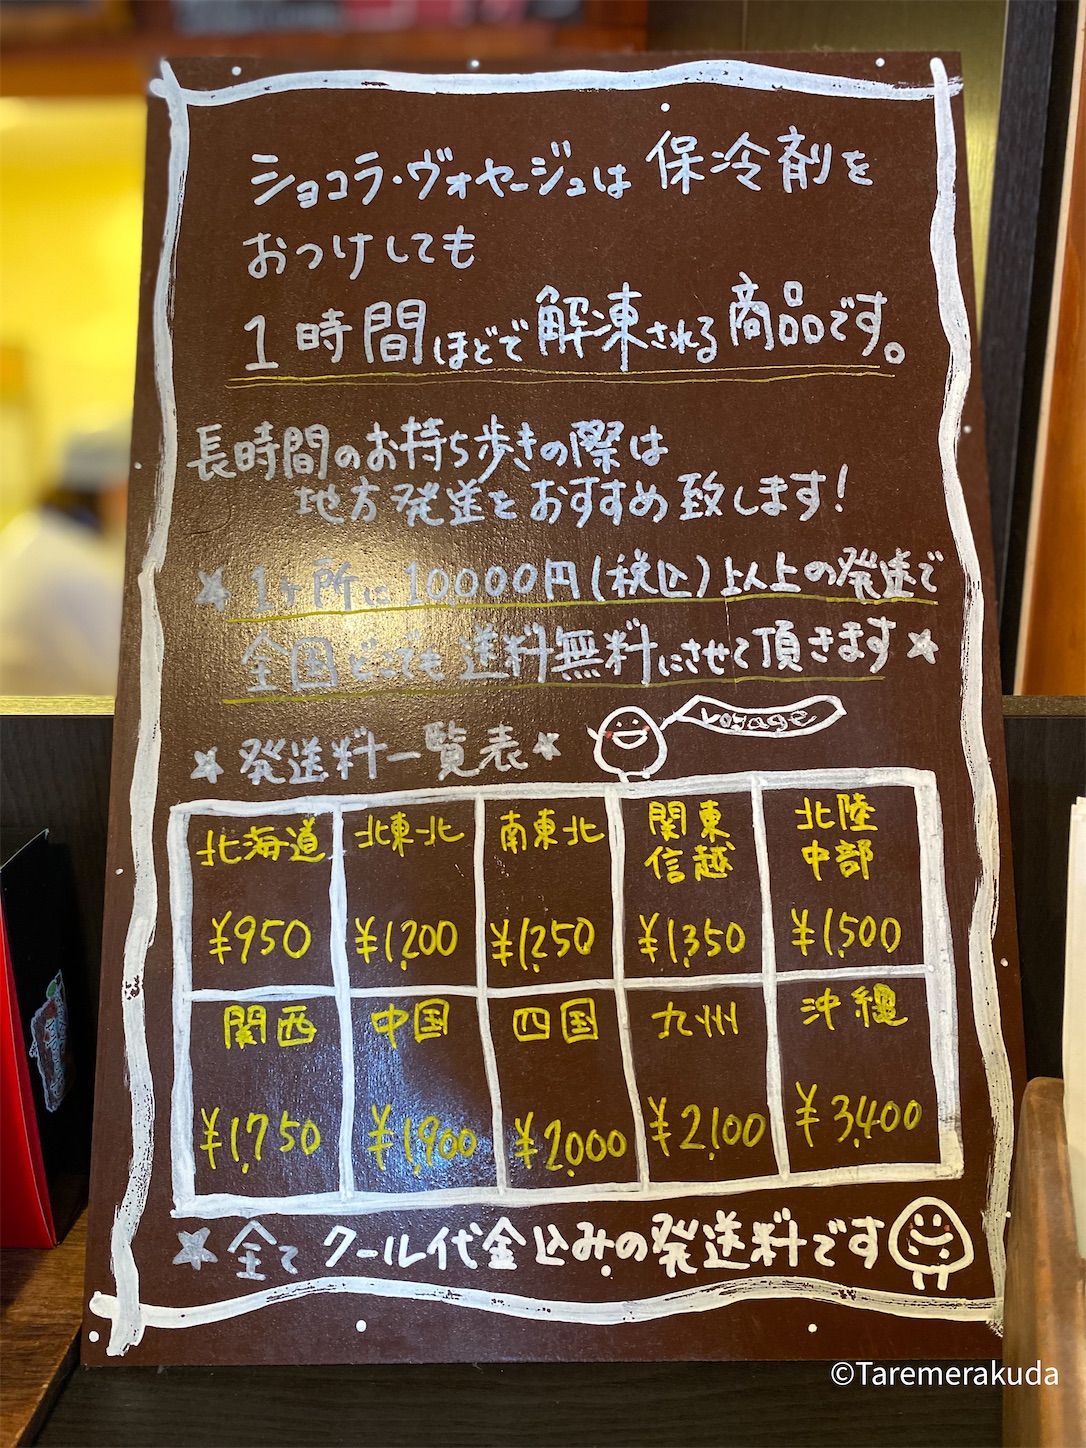 ショコラ・ヴォヤージュは保冷剤を
おつけしても
1時間ほどで解凍される商品です。
長時間のお持ち歩きの際は
地方発送をおすすめ致します!
★1ヶ所に10,000円(税込)以上の発送で
全国どこでも送料無料にさせて頂きます★
★発送料一覧表★
voyage
北海道 北東北 南東北 関東信越 北陸中部
¥950 ¥1,200 ¥1,250 ¥1,350 ¥1,500
関西 中国 四国 九州 沖縄
¥1,750 ¥1,900 ¥2,000 ¥2,100 ¥3,400
★全てクール代金込みの発送料です
©Taremerakuda